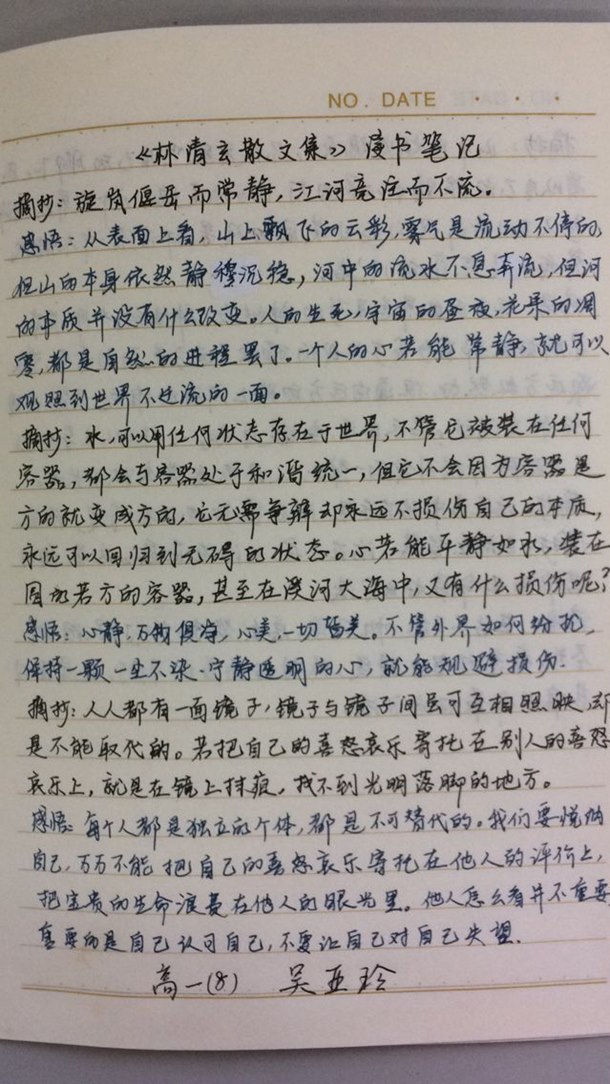 NO. DATE
《林清玄散文集》读书笔记
摘抄：旋岚偃岳而常静，江河竞注而不流。
感悟：从表面上看，山上飘飞的云彩，雾气是流动不停的，
但山的本身依然静穆沉稳，河中的流水不息奔流，但河
的本质并没有什么改变。人的生死，宇宙的昼夜，花果的凋
零，都是自然的进程罢了。一个人的心若能常静，就可以
观照到世界不迁流的一面。
摘抄：水，可以用任何状态存在于世界，不管它被装在任何
容器，都会与容器处于和谐统一，但它不会因为容器是
方的就变成方的，它无需争辩却永远不损伤自己的本质，
永远可以回归到无碍的状态。心若能平静如水，装在
圆的或方的容器，甚至在溪河大海中，又有什么损伤呢？
感悟：心静，万物俱净，心美，一切皆美。不管外界如何纷扰，
保持一颗一尘不染、宁静透明的心，就能规避损伤.
摘抄：人人都有一面镜子，镜子与镜子间虽可互相照映，却
是不能取代的。若把自己的喜怒哀乐寄托在别人的喜怒
哀乐上，就是在镜上抹痕，找不到光明落脚的地方。
感悟：每个人都是独立的个体，都是不可替代的。我们要悦纳
自己，万万不能把自己的喜怒哀乐寄托在他人的评价上，
把宝贵的生命浪费在他人的眼光里。他人怎么看并不重要
重要的是自己认可自己，不要让自己对自己失望.
高一(8) 吴亚玲